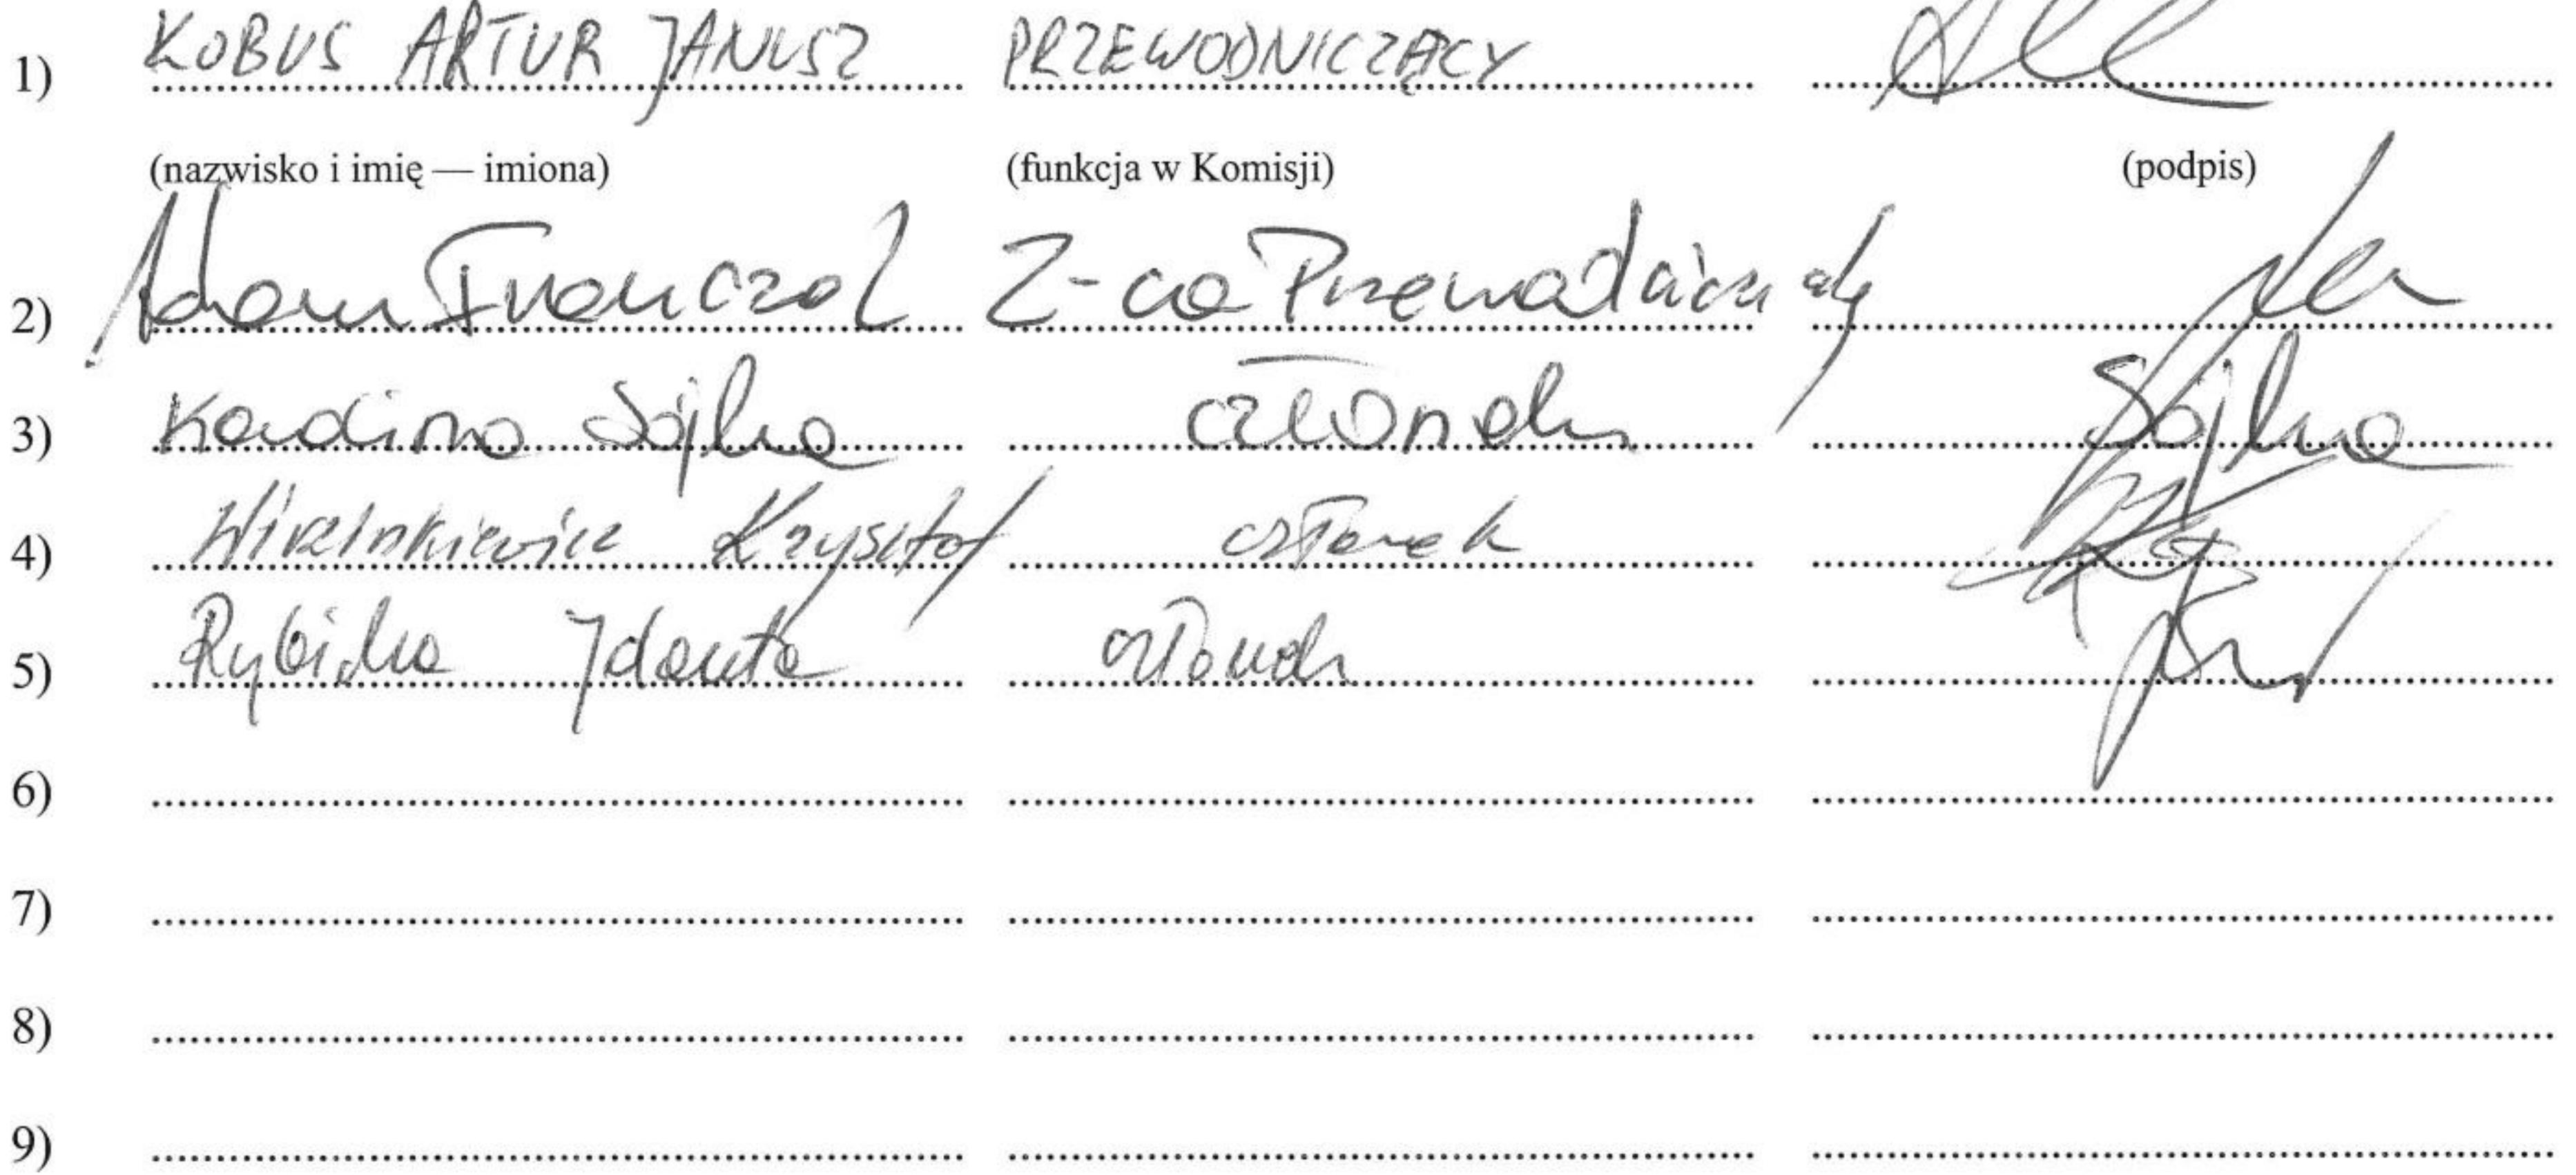 1) KOBUS ARTUR JANUSZ PRZEWODNICZĄCY
(nazwisko i imię — imiona) (funkcja w Komisji) (podpis)
2) Adam Z-ca Przewodniczący
3) Sójka członek Sójka
4) Krzysztof członek
5) Rybicka członek
6)
7)
8)
9)